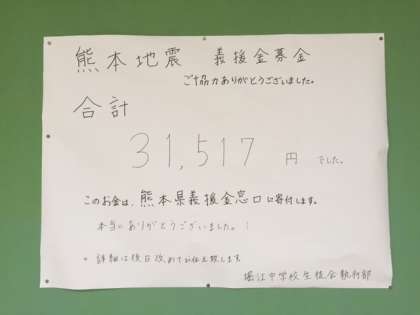 熊本地震 義援金募金
ご協力ありがとうございました。
合計
31,517 円 でした。
このお金は、熊本県義援金窓口に寄付します。
本当にありがとうございました。!
* 詳細は後日改めてお伝え致します
堀江中学校生徒会執行部